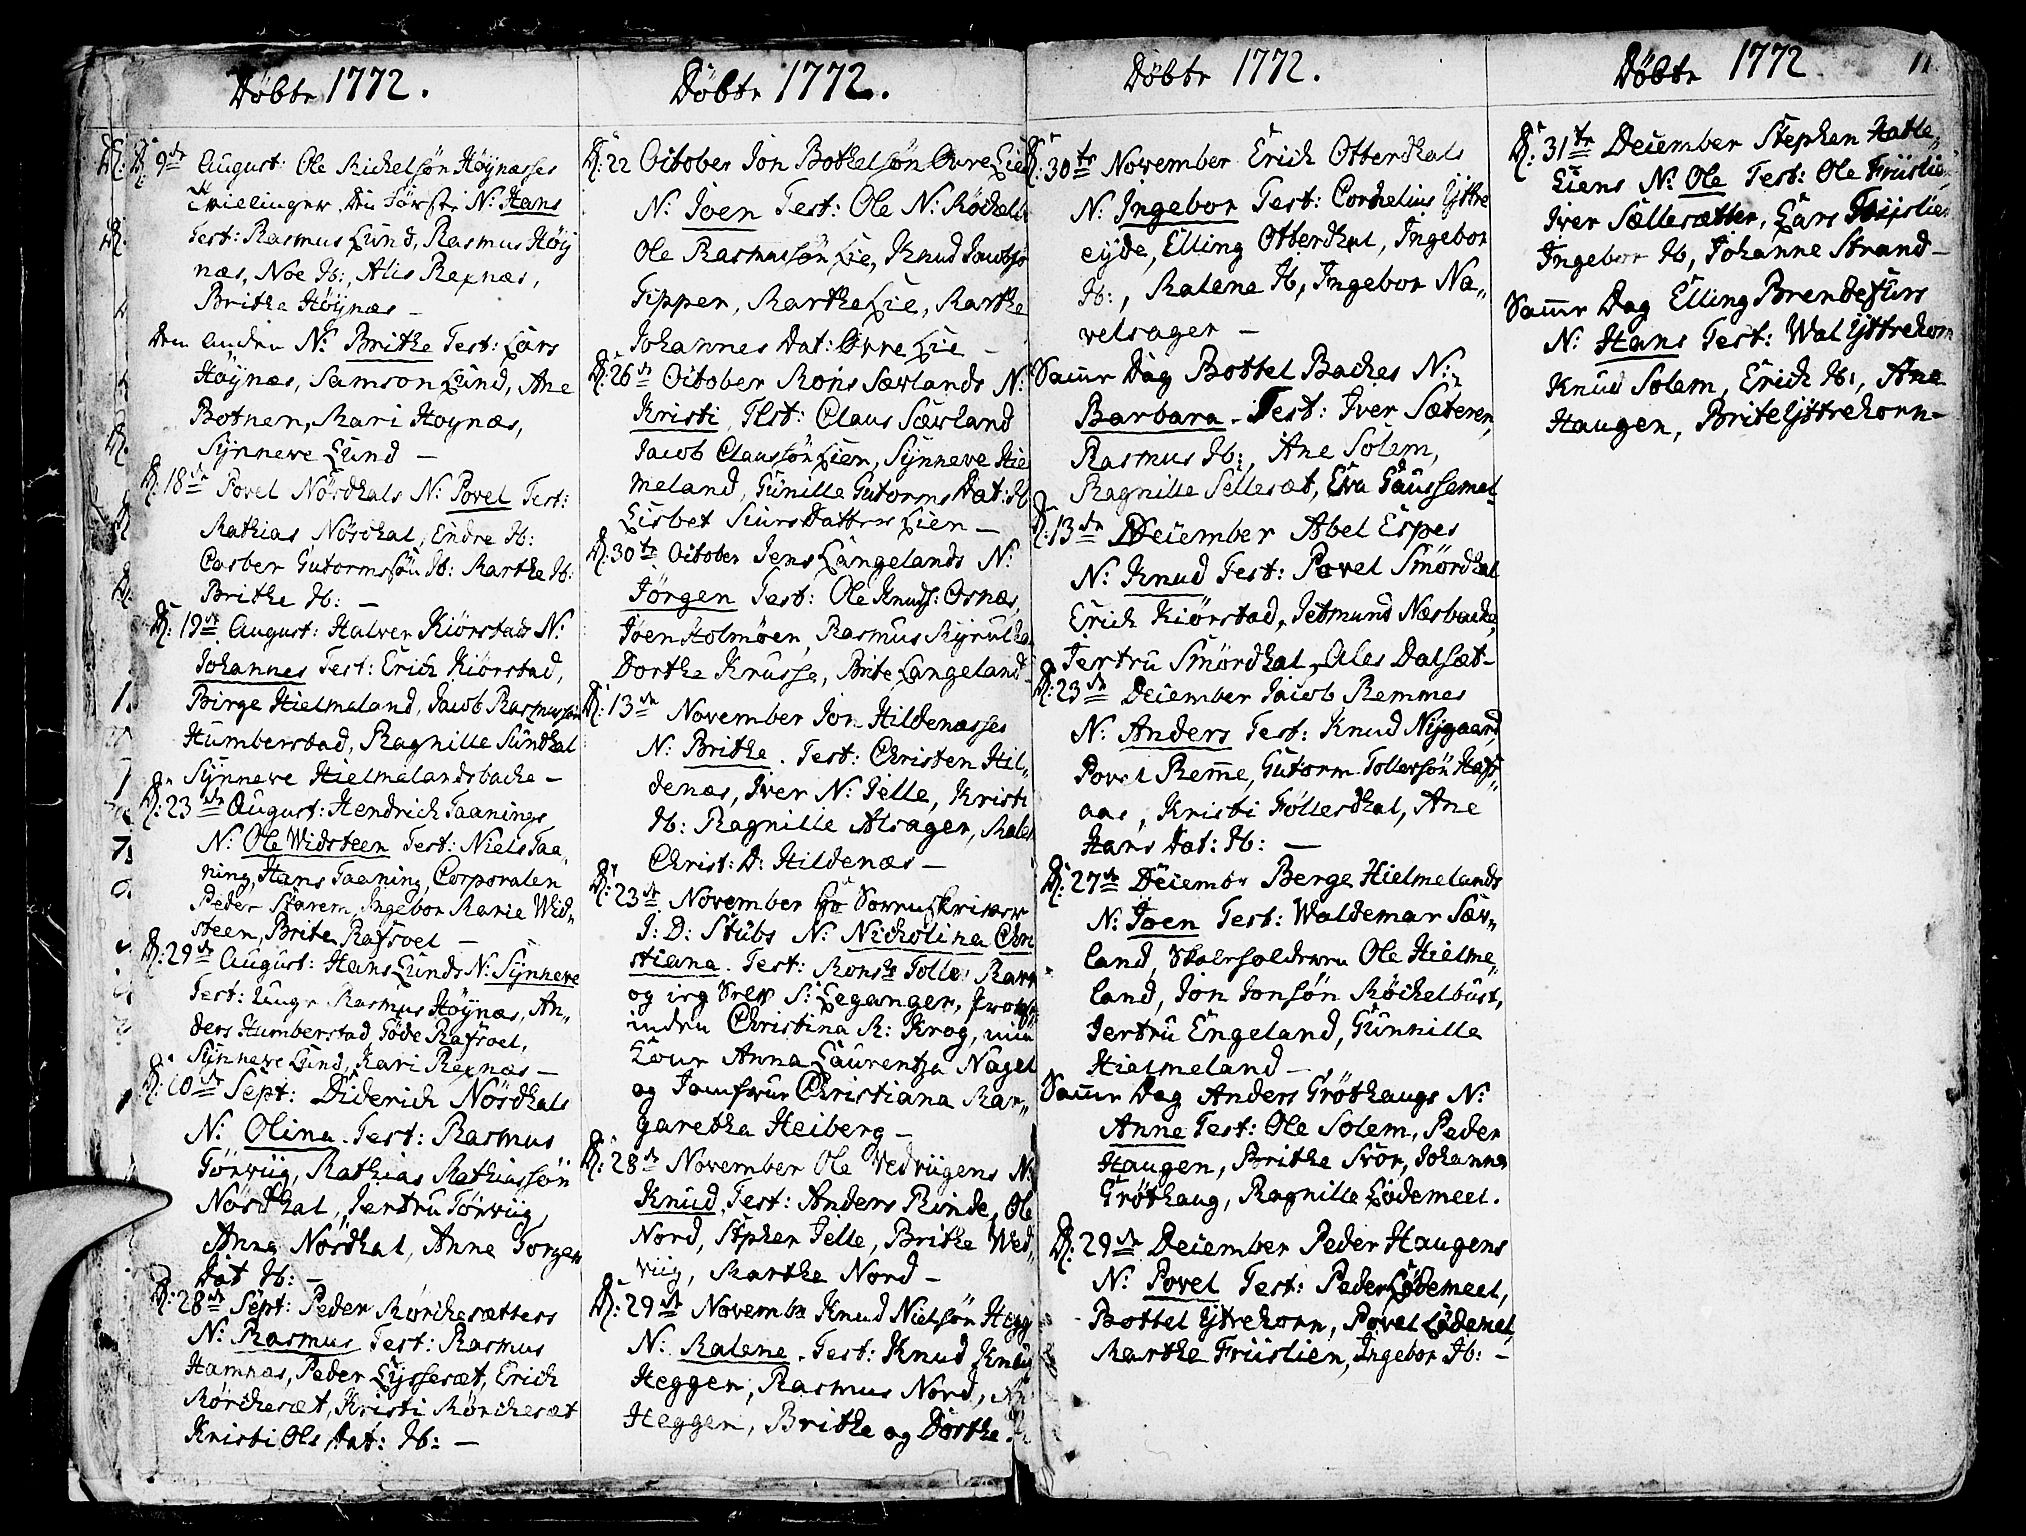 Döbte 1772.
D: 9de August: Ole Michelsön Höynæsses
Tvillinger. Den Förste N: Hans
Test: Rasmus Lund, Rasmus Höy
næs, Noe Ib:, Alis Rexnæs,
Brithe Höynæs –
Den anden N: Brithe Test: Lars
Höynæs, Samson Lund, Ane
Botnen, Mari Hoynæs,
Synneve Lund –
D: 18de Povel Nördhals N: Povel Test:
Mathias Nördhal, Endre Ib:
Casber Gutormssön Ib: Marthe Ib:
Brithe Ib: –
D: 19de August: Halver Kiörstads N:
Johannes Test: Erich Kiörstad,
Birge Hielmeland, Jacob Rasmussön
Humberstad, Ragnille Sundhal
Synneve Hielmelandsbache –
D: 23de August: Hendrich Taanings
N: Ole Widsteen Test: Niels Taa,
ning, Hans Taaning, Corporalen
Peder Starem, Ingebor Marie Wid,
steen, Brite Rafsvel –
D: 29de August: Hans Lunds N: Synneve
Test: Unge Rasmus Höynæs, An,
ders Humberstad, Töde Rafsvel,
Synneve Lund, Kari Rexnæs –
D: 10de Sept: Diderich Nördhals
N: Olina. Test: Rasmus
Törviig, Mathias Mathiassön
Nördhal, Jertru Törviig,
Anna Nördhal, Anne Torger
Dat Ib: –
D: 28de Sept: Peder Mörchesætters
N: Rasmus Test: Rasmus
Hamnæs, Peder Lyssesæt, Erich
Mörchesæt, Kristi Mörchesæt
Kristi Ols Dat: Ib: –
Döbte 1772.
D: 22 October Jon Bothelsön Övre Lies
N: Joen Test: Ole N: Möchel
Ole Rasmussön Lie, Knud Jacobsö
Tipper, Marthe Lie, Marthe
Johannes Dat: Övre Lie –
D: 26de October Mons Sæwlands N:
Kristi, Test: Claus Sæwland
Jacob Claussön Lien, Synneve Hie
meland, Gunille Gutorms Dat: Ib
Lisbet Siurs Datter Lien –
D: 30te October Jens Langelands N:
Jörgen Test: Ole Knuds: Osnæs,
Joen Holmöen, Rasmus Myrul
Dorthe Krusse, Brite Langeland –
D: 13de November Jon Hildenæsses
N: Brithe. Test: Christen Hil,
denæs, Iver N: Jelle, Kristi
Ib: Ragnille Alsager, Male
Christ: D: Hildenæs –
D: 23de November Sorenskriver
J: D: Stubs N: Nicholina Chri
stiana. Test: Mons: Tolle:
og S: Leganger,
inden Christina M: Krog, min
Anna Laurentza Nagel
og Jomfrue Christiana Mar,
garetha Heiberg –
D: 28de November Ole Vedviigens N:
Knud, Test: Anders Rinde, Ole
Nord, Stphen Jelle, Brithe Wed,
viig, Marthe Nord –
D: 29de November Knud Nielsön Hegg
N: Malene. Test: Knud
Heggen, Rasmus Nord,
Heggen, Brithe og Dorthe.
Döbte 1772.
D: 30te November Erich Otterdhals
N: Ingebor Test: Corhelius Yttre
eyde, Elling Otterdhal, Ingebor
Ib:, Malene Ib, Ingebor Na,
velsager –
Samme Dag Bottel Baches N:
Barbara. Test: Iver Sæteren,
Rasmus Ib:, Ane Solem,
Ragnille Sellesæt, Eva Gaussemel
D: 13de December Abel Espes
N: Knud Test: Povel Smördhal
Erich Kiörstad, Jetmund Næsbache,
Jertru Smördhal, Ales Dalsæt –
D: 23de December Jacob Remmes
N: Anders Test: Knud Nygaard,
Povel Remme, Gutorm Tollersön Haf
aas, Kristi Föllesdhal, Ane
Hans Dat: Ib: –
D: 27de December Berge Hielmelands
N: Joen Test: Waldemar Sæv,
land, Ole Hielme,
land, Jon Jonsön Möchelbust,
Jertru Engeland, Gunhille
Hielmeland –
Samme Dag Anders Gröthaugs N:
Anne Test: Ole Solem, Peder
Haugen, Brithe Svor, Johanne
Gröthaug, Ragnille Lödemeel.
D: 29de December Peder Haugens
N: Povel Test: Peder Lödemeel,
Bottel Yttrehorn, Povel Lödemel,
Marthe Friislien, Ingebor Ib: –
Döbte 1772
11.
D: 31te December Stephen Hatle,
Liens N: Ole Test: Ole Friislie,
Iver Sællesætter, Lars Friislie,
Ingebor Ib, Johanne Strand –
Samme Dag Elling Brendefurs
N: Hans Test: Wal Yttrehorn
Knud Solem, Erich Ib:, Ane
Haugen, Brite Yttrehorn –